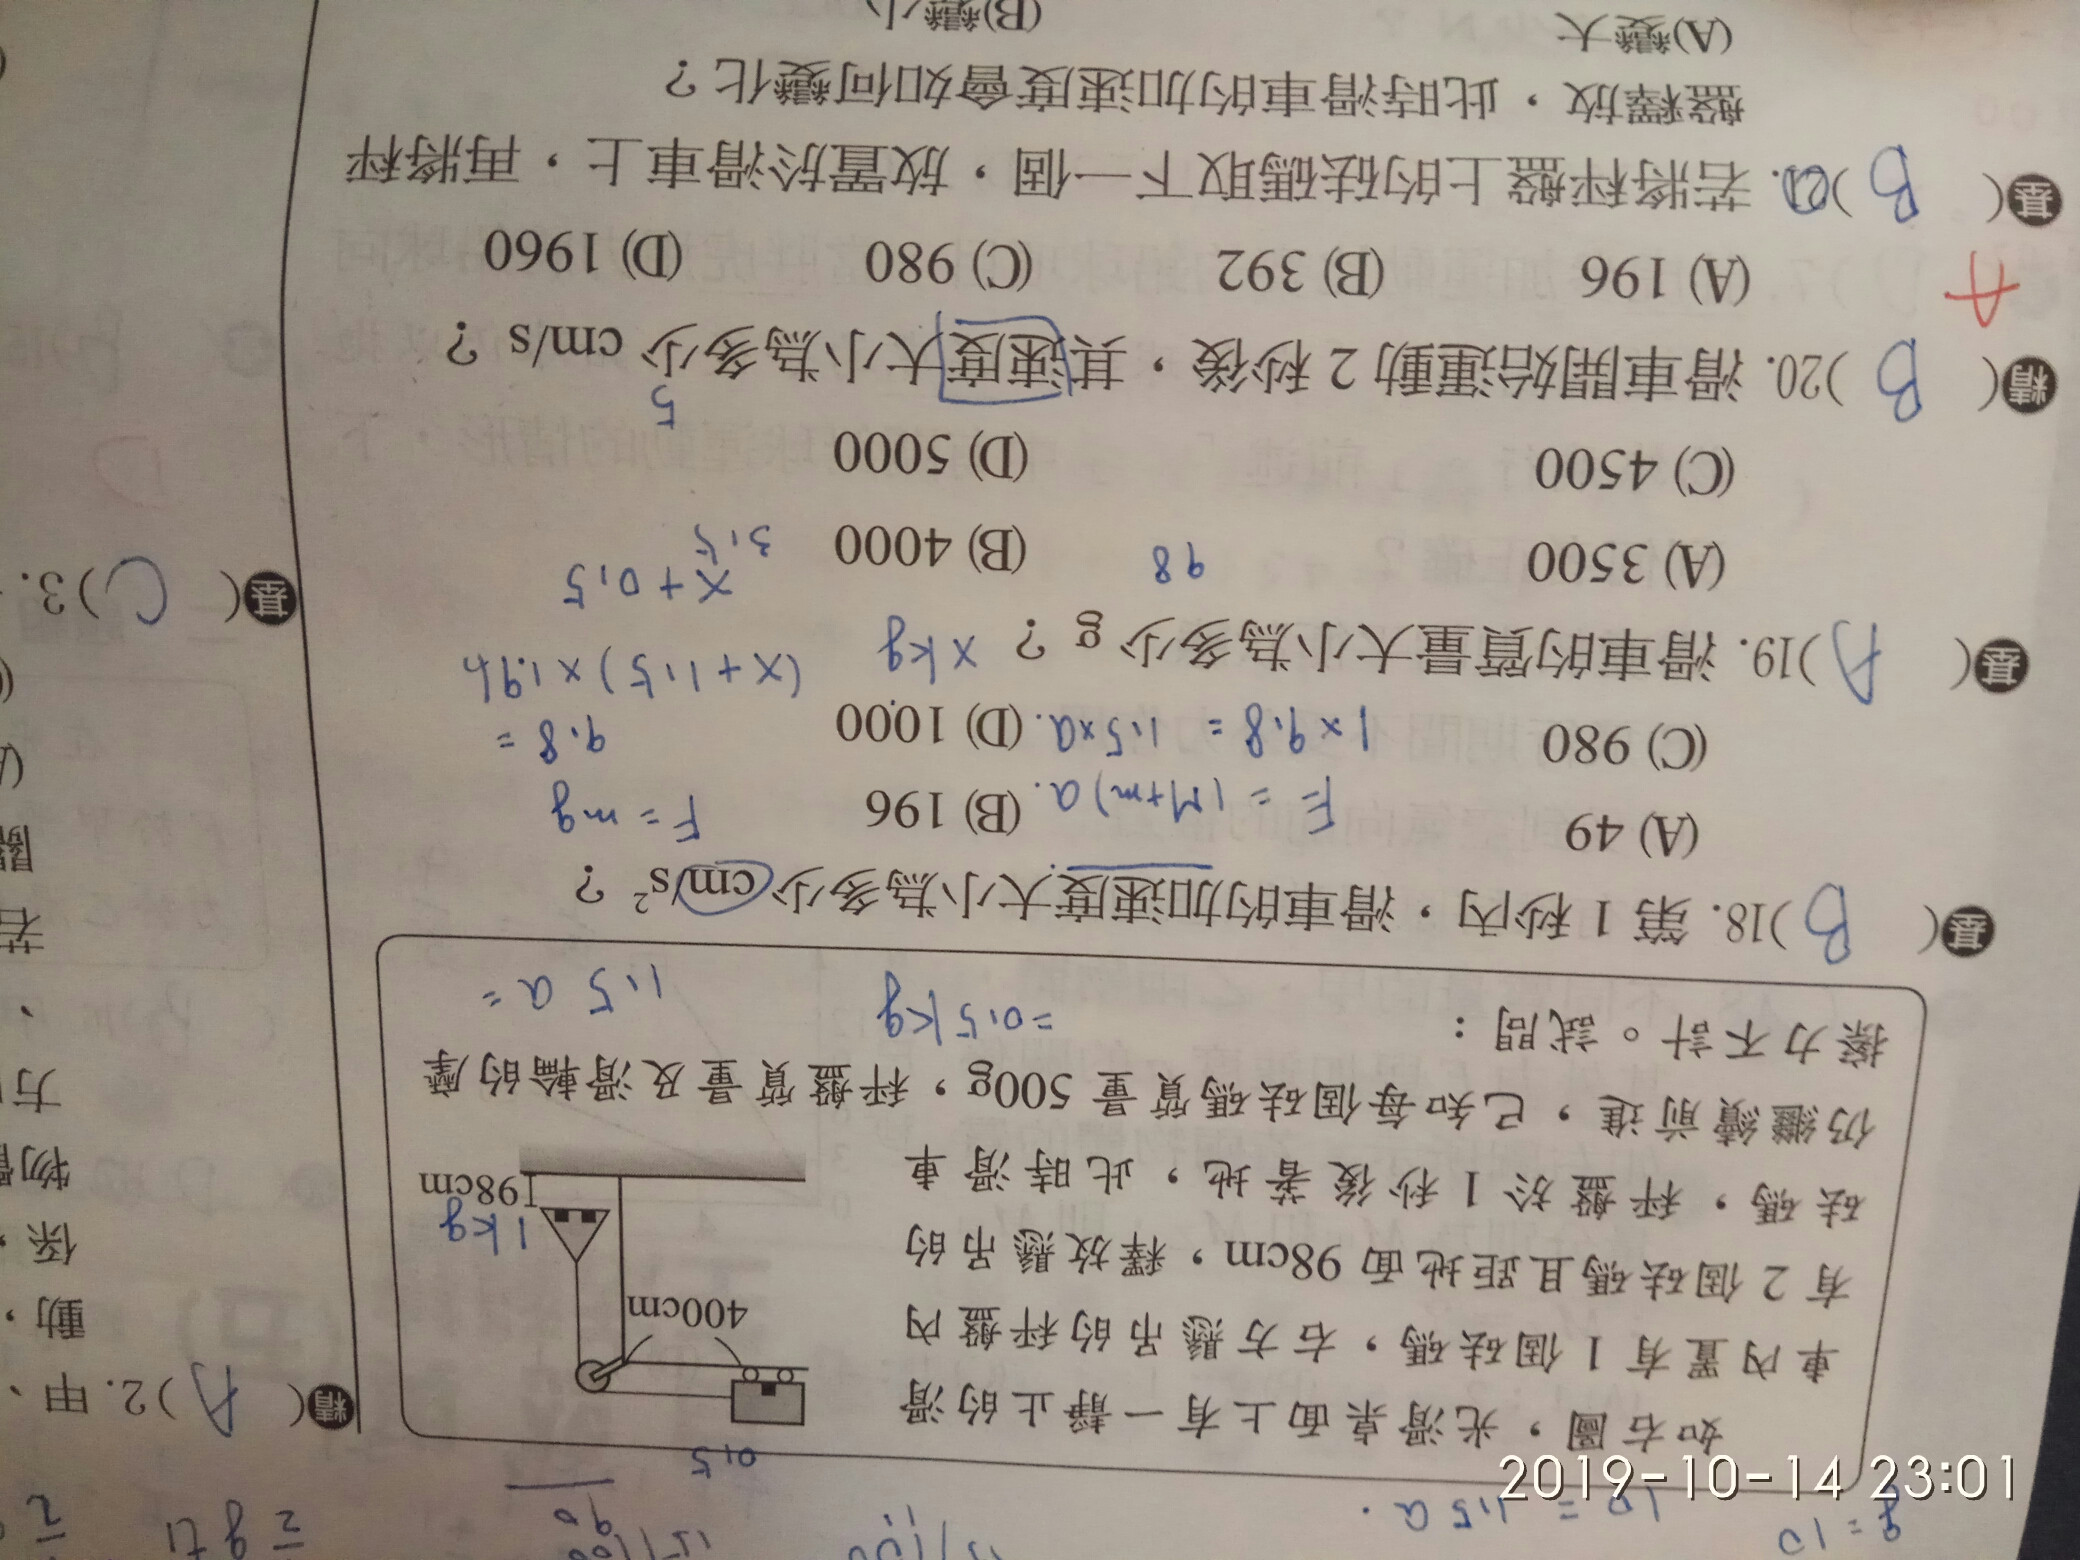 g=10
10 = 1.5a.
0.5
如右圖，光滑桌面上有一靜止的滑
車內置有1個砝碼，右方懸吊的秤盤內
有2個砝碼且距地面98cm，釋放懸吊的
砝碼，秤盤於1秒後著地，此時滑車
仍繼續前進，已知每個砝碼質量500g，秤盤質量及滑輪的摩
擦力不計。試問：
400cm
1kg
98cm
=0.5kg
1.5 a =
基( B )18. 第1秒內，滑車的加速度大小為多少cm/s²？
(A) 49 (B) 196
(C) 980 (D) 1000
F = (M+m)a.
F = mg
1×9.8 = 1.5×a.
9.8 =
(x+1.5)×1.96
基( A )19. 滑車的質量大小為多少g？
x kg
x+0.5
3.5
(A) 3500 (B) 4000
98
(C) 4500 (D) 5000
5
精( B )20. 滑車開始運動2秒後，其速度大小為多少cm/s？
A
(A) 196 (B) 392 (C) 980 (D) 1960
基( B )21. 若將秤盤上的砝碼取下一個，放置於滑車上，再將秤
盤釋放，此時滑車的加速度會如何變化？
(A)變大 (B)變小
精( A )2. 甲、
動，
係，
物體
方
、
若
關
基( C )3.
2019-10-14 23:01